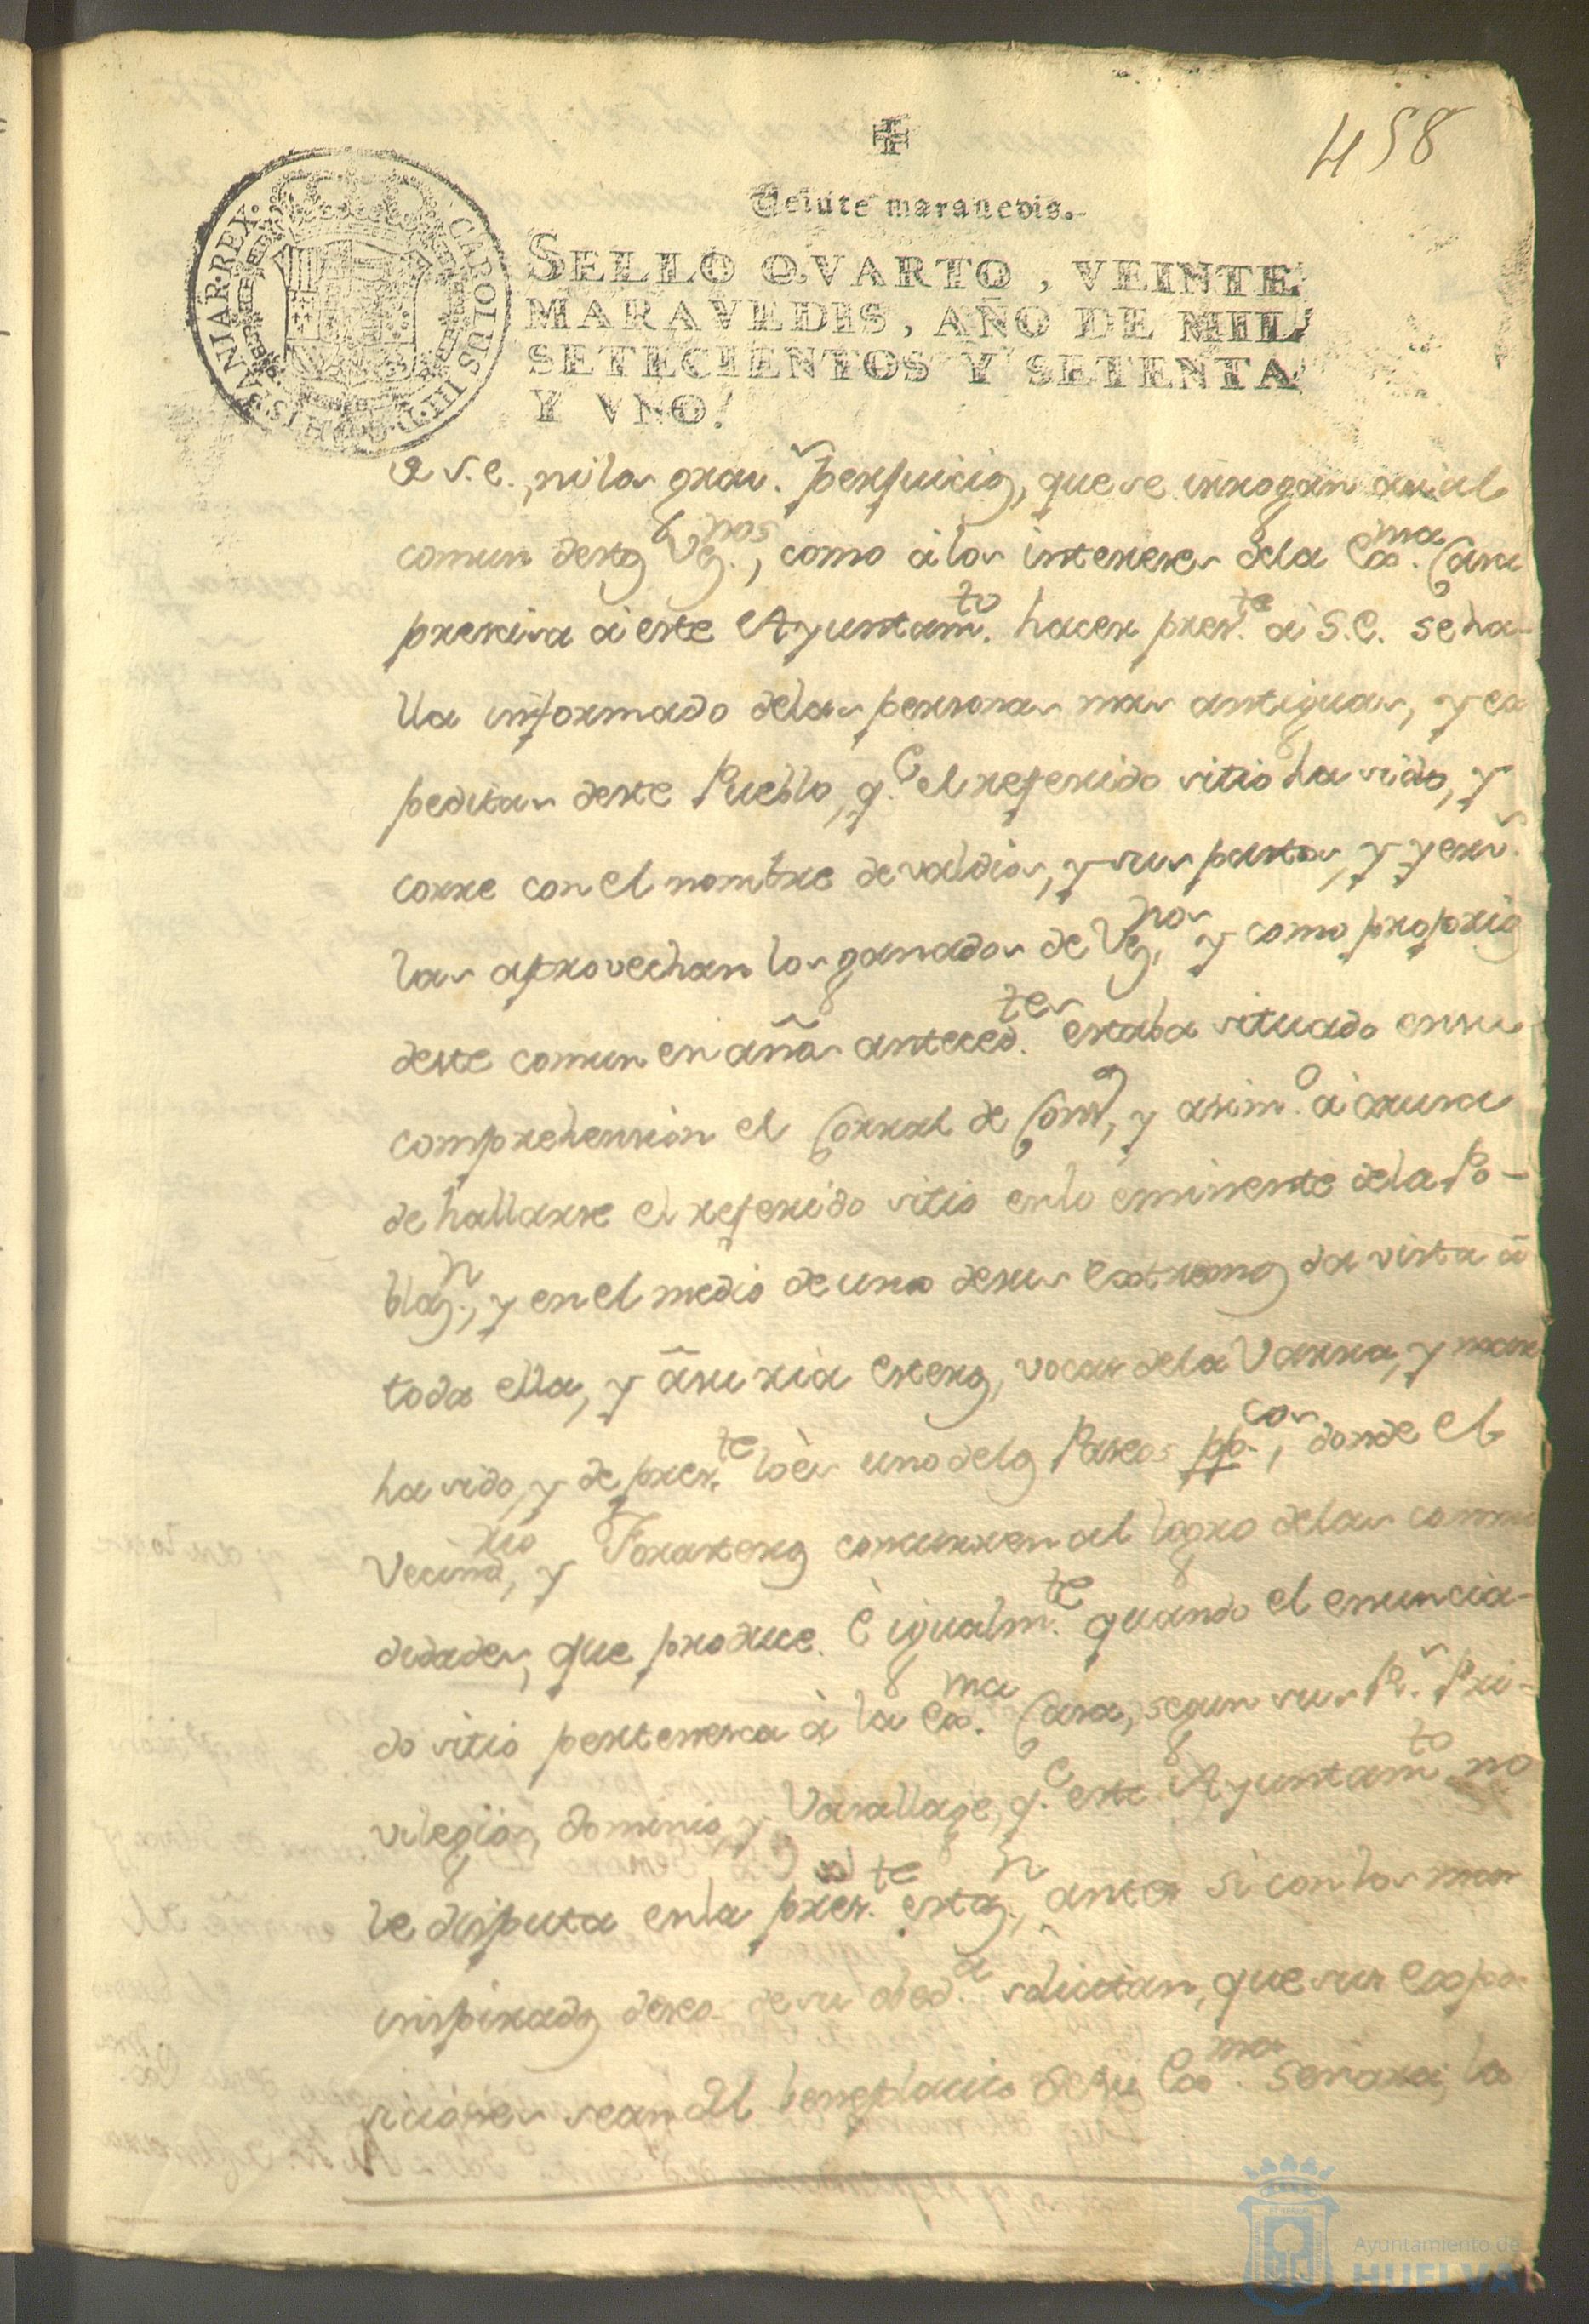 458
Veinte marauedis.
SELLO QVARTO, VEINTE
MARAVEDIS, AÑO DE MIL
SETECIENTOS Y SETENTA
Y VNO.
CAROLUS III D G HISPANIAR REX
a S.E., ni los grav.s perjuicios, que se irrogan asi al
comun destos Vez.nos, como à los intereses dela Exx.ma Casa
presisa à este Ayuntam.to hacer pres.te a S.E. se ha-
lla informado delas personas mas antiguas, y ex
peditas deste Pueblo, q.e el referido sitio ha sido, y
corre con el nombre de valdios, y sus pastos, y yerv.s
las aprovechan los ganados de Vez.nos y como proprio
deste comun en años anteced.tes estaba situado en su
comprehension el Corral de Conso, y asim.o à causa
de hallarse el referido sitio en lo eminente dela Po-
blaz.n, y en el medio de uno desus extremos da vista à
toda ella, y à su ria esteros, vocas dela Varra, y mar
ha sido, y de pres.te lo es uno delos Paseos pp.cos, donde el
Vecind.rio, y Forasteros concurren al logro delas commo
didades, que produce. È igualm.te quando el enuncia-
do sitio pertenesca à la Exx.ma Casa, segun sus R.s Pri-
vilegios, dominio, y Vasallage, q.e este Ayuntam.to no
le disputa en la pres.te estaz.n, antes si con los mas
inspirados deseos de su obed.a solicitan, que sus expo
siciones sean del beneplacito de su Exx.ma Señora, la
Ayuntamiento de
HUELVA